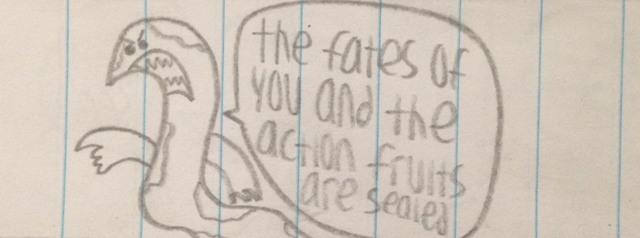 the fates of
you and the
action fruits
are sealed